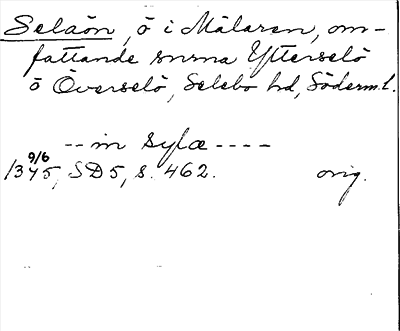 Selaön, ö i Mälaren, om-
fattande snrna Ytterselö
o Överselö, Selebo hd, Söderm.l.
-- in sylæ ----
9/6
1345, SD5, s. 462. orig.